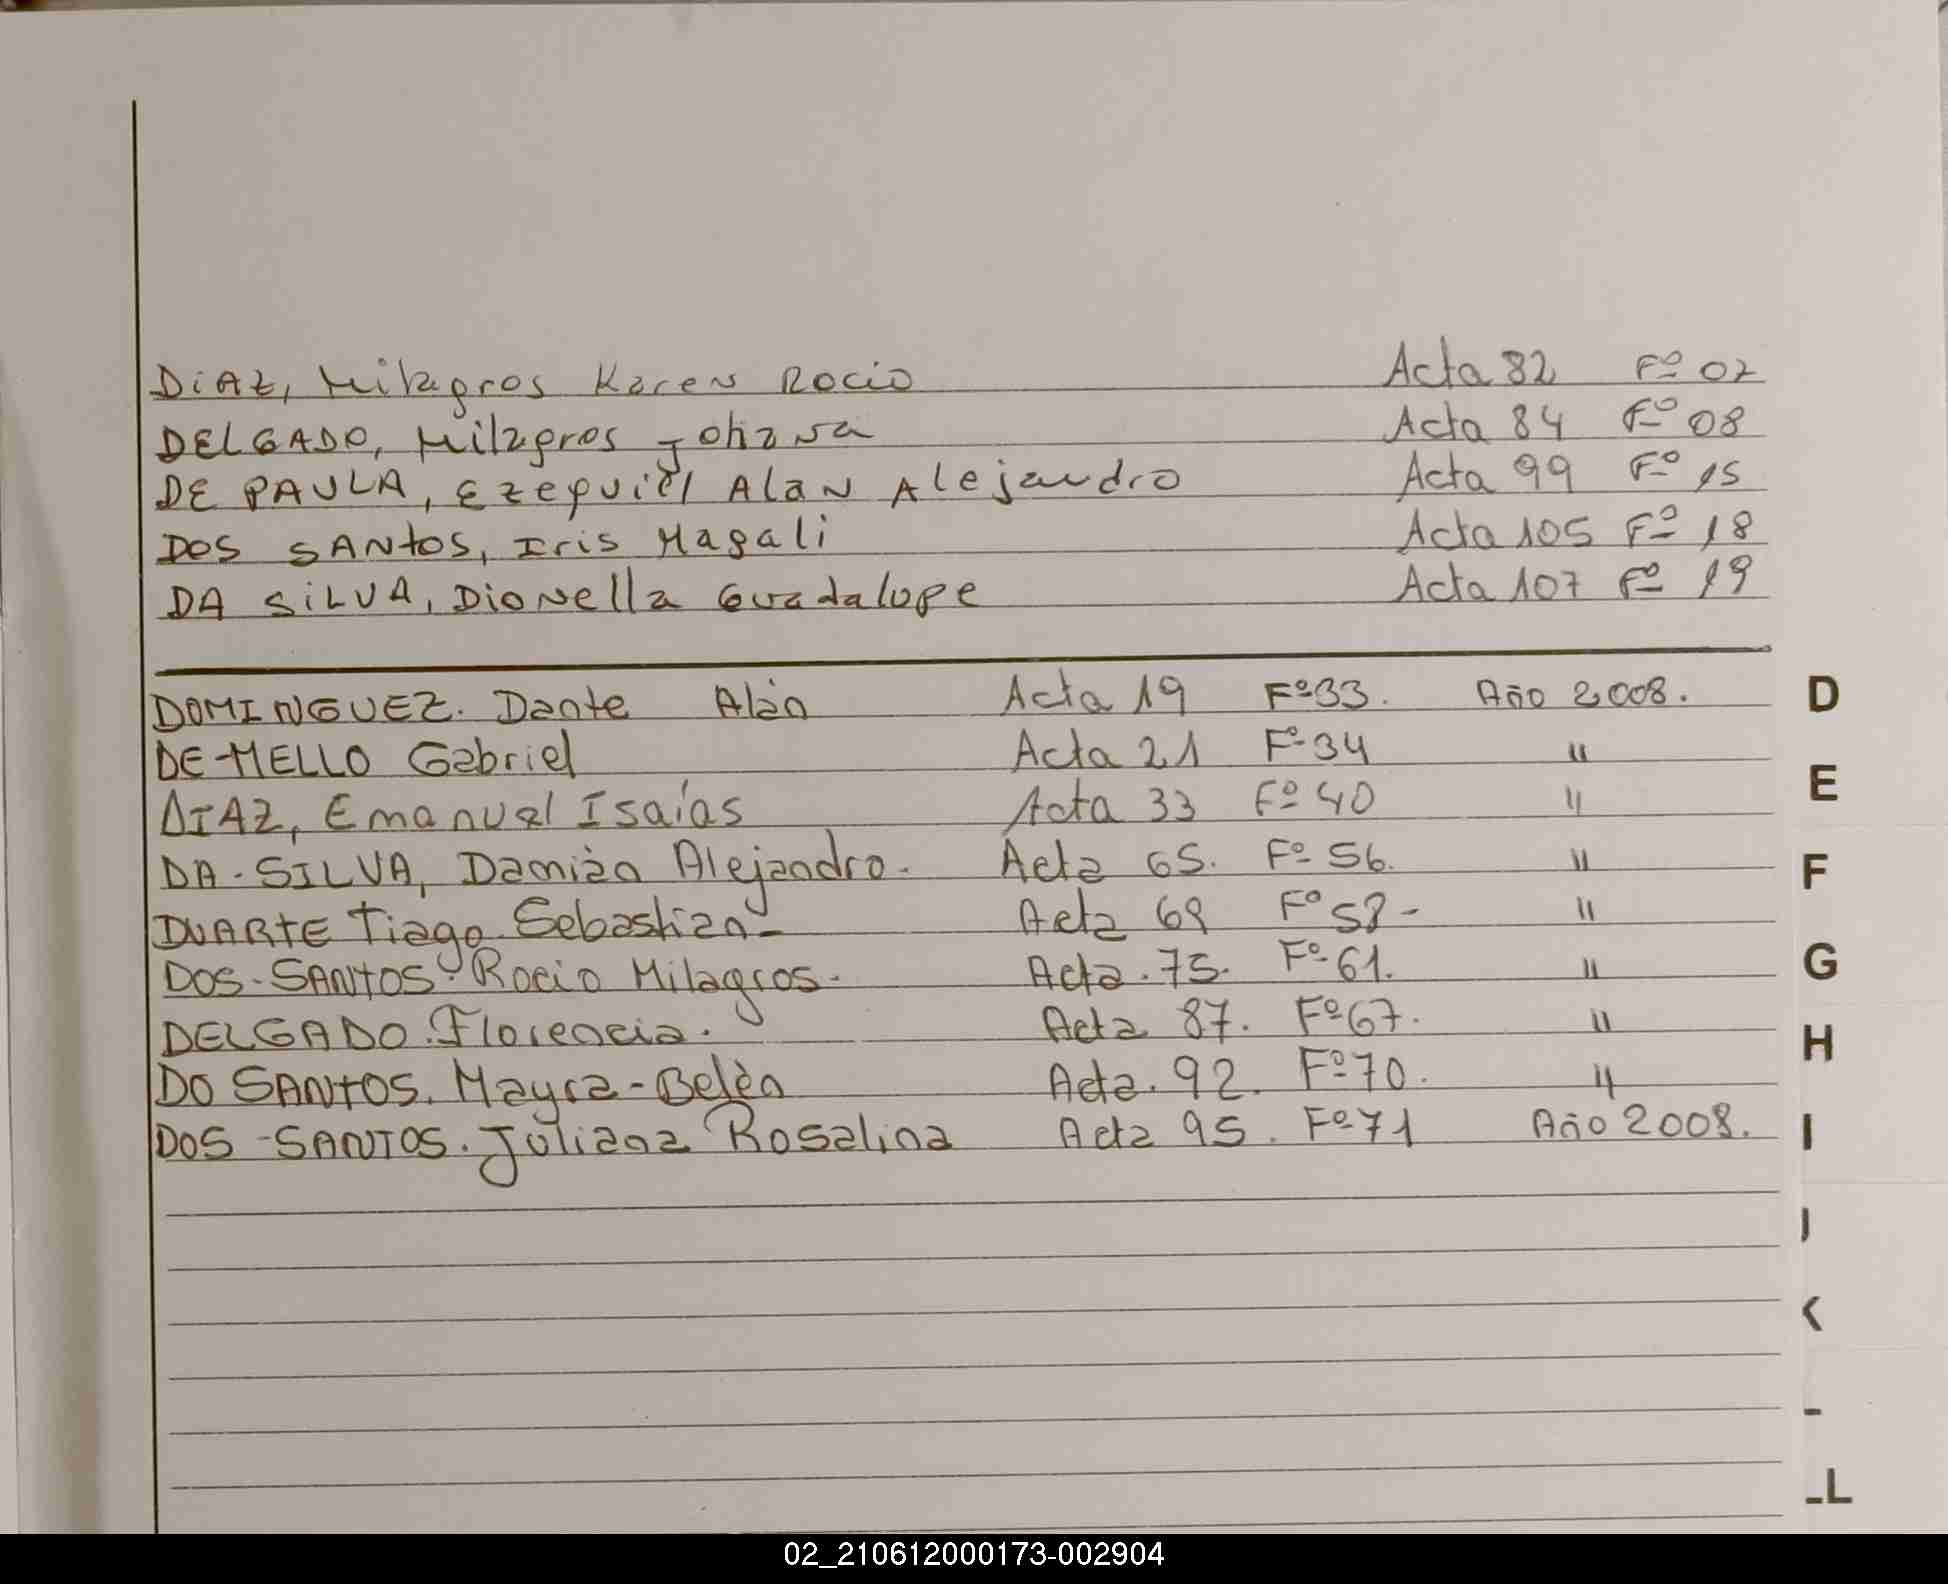 DiAZ, Milagros Karen Rocio Acta 82 Fº 07
DELGADO, Milagros Johana Acta 84 Fº 08
DE PAULA, Ezequiel Alan Alejandro Acta 99 Fº 15
DOS SANtOS, Iris Magali Acta 105 Fº 18
DA SiLVA, Dionella Guadalupe Acta 107 Fº 19
DOMINGUEZ. Dante Alàn Acta 19 Fº 33. Año 2,008.
DE-MELLO Gabriel Acta 21 Fº 34 "
DIAZ, Emanuel Isaías Acta 33 Fº 40 "
DA-SILVA, Damiàn Alejandro. Acta 65. Fº 56. "
DUARTE Tiago Sebastian- Acta 69 Fº 58- "
DOS-SANTOS Rocio Milagros. Acta.75. Fº 61. "
DELGADO.Florencia. Acta 87. Fº 67. "
DO SANTOS. Mayra-Belèn Acta.92. Fº 70. "
DOS-SANTOS. Juliana Rosalina Acta 95. Fº 71 Año 2008.
D
E
F
G
H
I
J
K
L
02_210612000173-002904